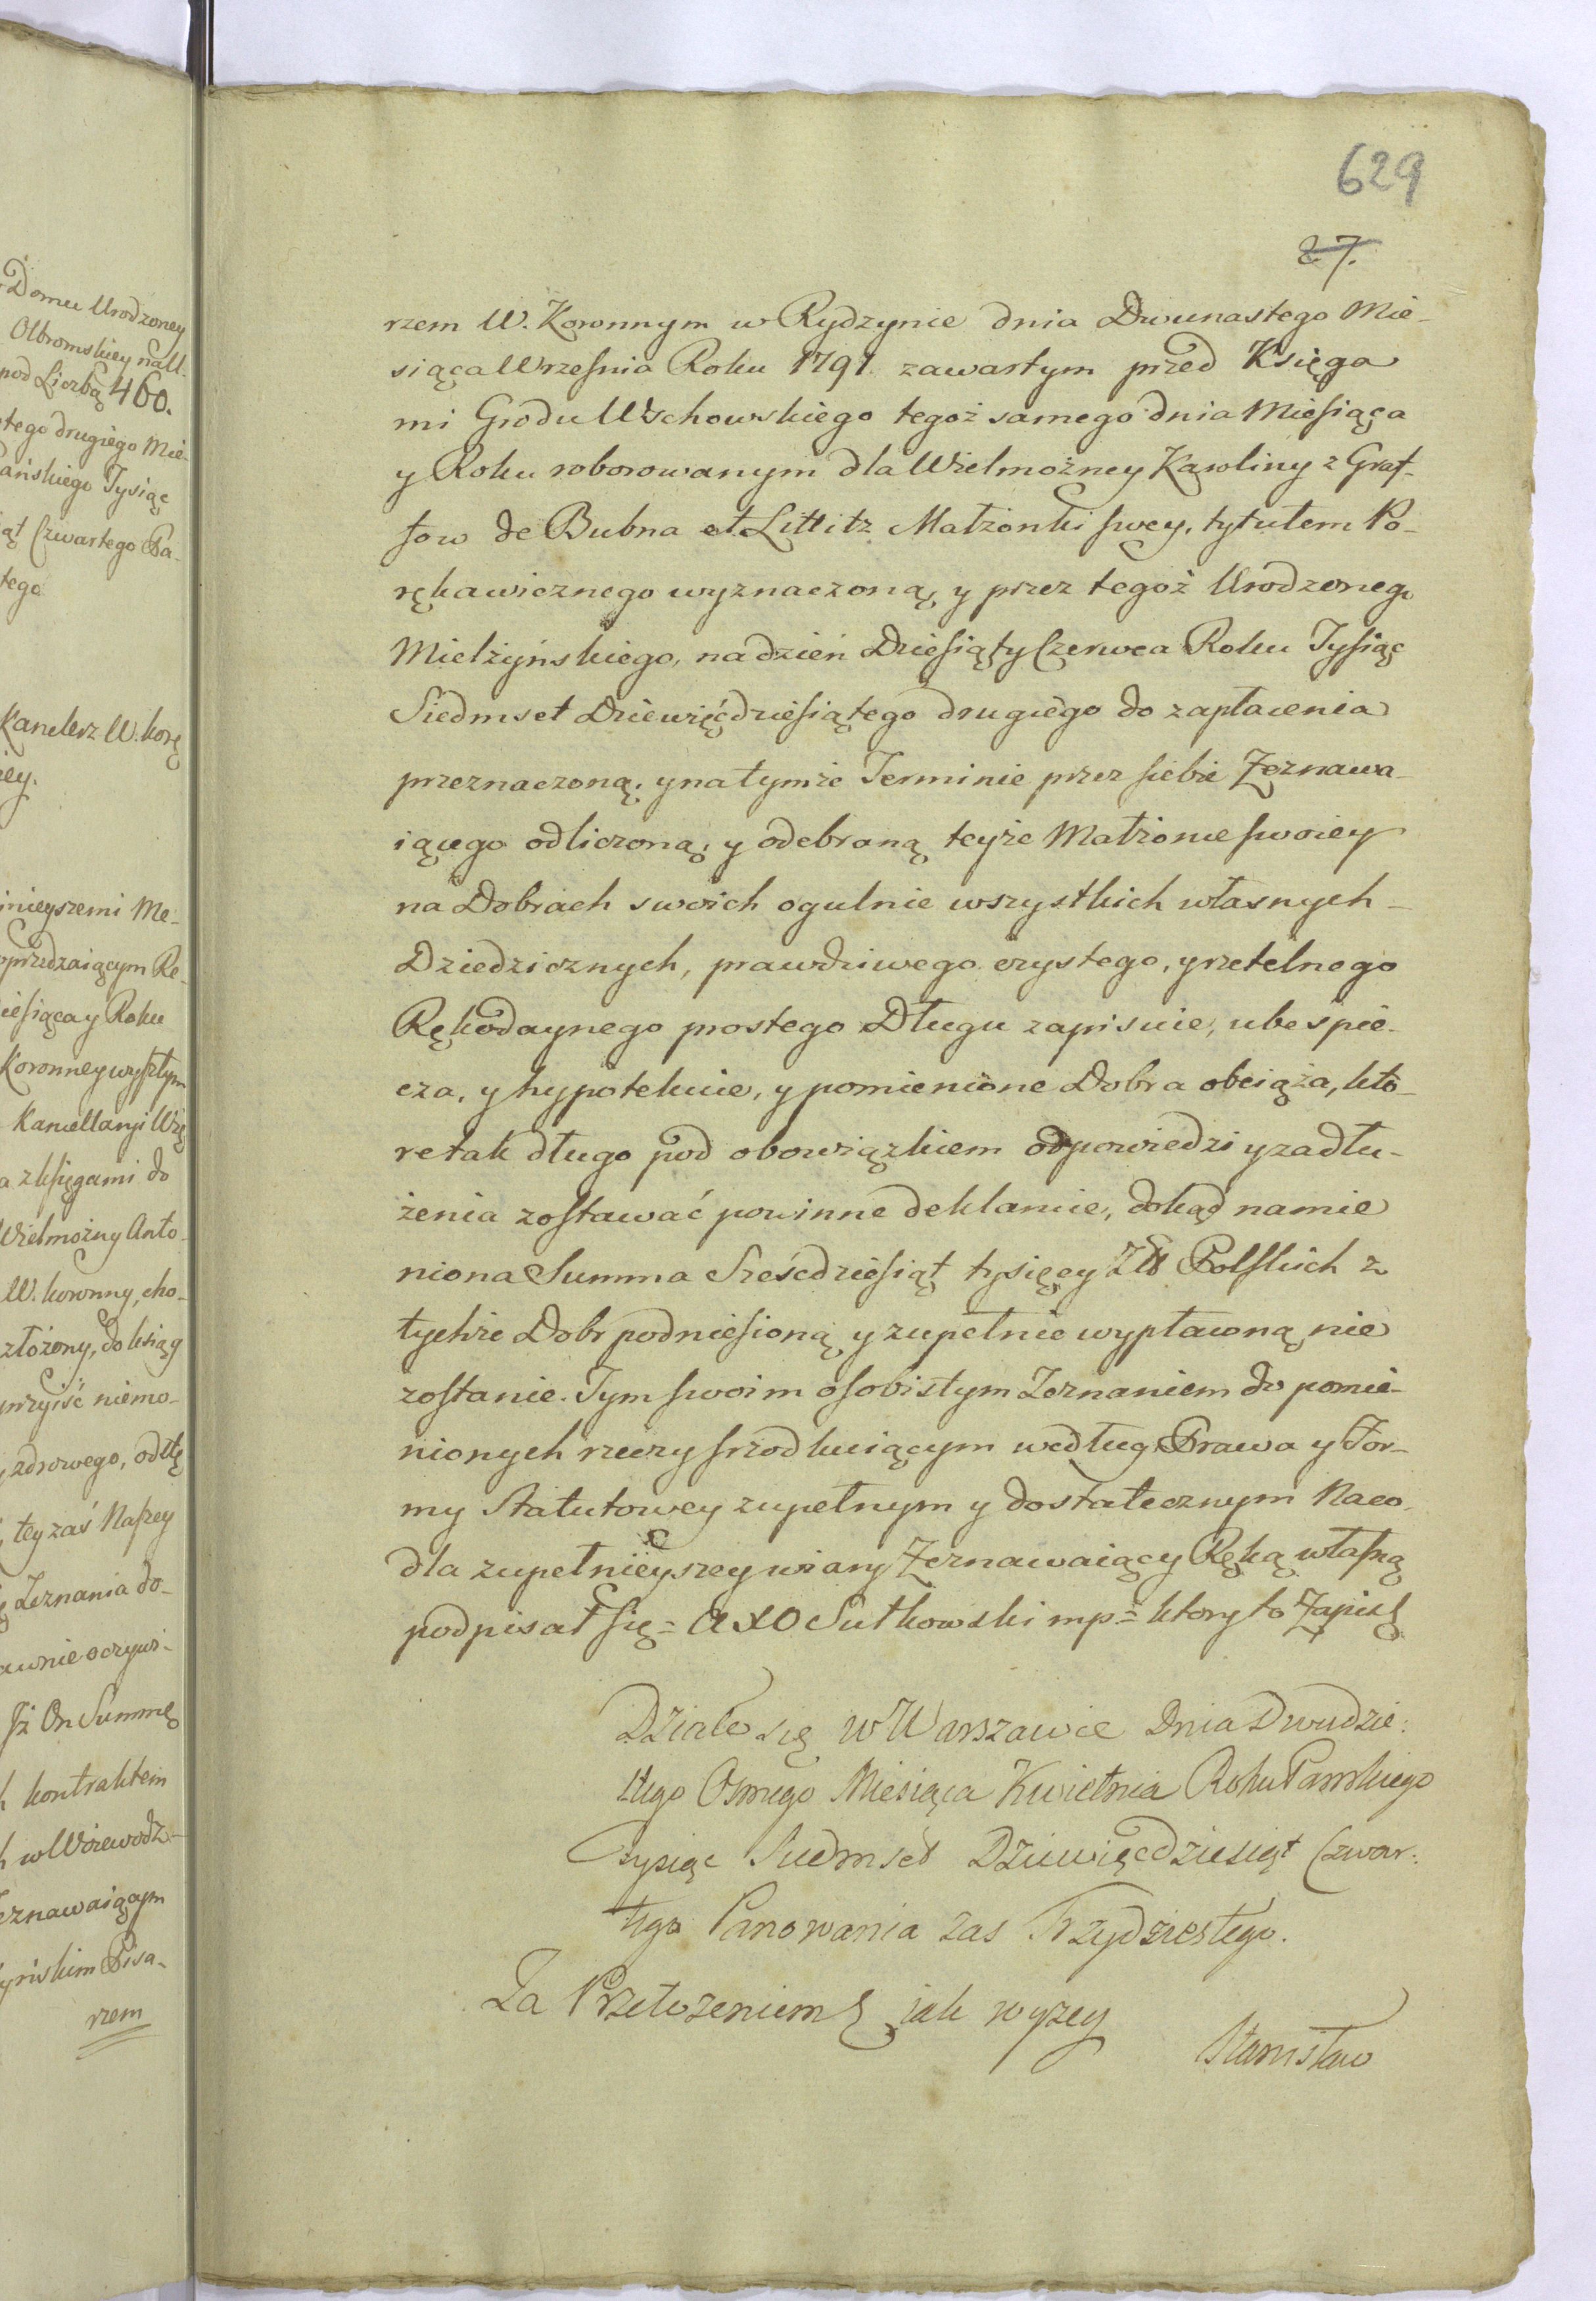 Domu Urodzoney
Olbromskiey nall.
pod Liczbą 460.
tego drugiego Mie-
Pańskiego Tysiąc
ąt Czwartego Pa-
tego
Kanclerz W. korę
ey.
inieyszemi Me-
oprzedzaiącym Re-
iesiąca y Roku
Koronney wyszłym
Kancellaryi Wię
a z księgami do
Wielmożny Anto-
W. koronny, cho-
złożony, do ksiąg
przyiść niemo-
zdrowego, od tę
tey zaś Naszey
Zeznania do-
awnie oczywi-
Jż On Summę
h kontraktem
h w Woiewodz-
Zeznawaiącym
yńskim Pisa-
rzem
629
27.
rzem W. Koronnym w Rydzynie dnia Dwunastego Mie-
siąca Września Roku 1791. zawartym przed Księga
mi Grodu Wschowskiego tegoż samego dnia Miesiąca
y Roku roborowanym dla Wielmożney Karoliny z Graf-
fow de Bubna et Littitz Małżonki swey, tytułem Po-
rękawicznego wyznaczoną, y przez tegoż Urodzonego
Mielżyńskiego, na dzień Dziesiąty Czerwca Roku Tysiąc
Siedmset Dziewięćdziesiątego drugiego do zapłacenia
przeznaczoną; y na tymże Terminie przez siebie Zeznawa-
iącego odliczoną; y odebraną teyże Małżonce swoiey
na Dobrach swoich ogulnie wszystkich własnych-
Dziedzicznych, prawdziwego czystego, y rzetelnego
Rękodaynego prostego Długu zapisuie, ubespie-
cza, y hypotekuie, y pomienione Dobra obciąża, kto-
re tak długo pod obowiązkiem odpowiedzi y zadłu-
żenia zostawać powinne deklaruie, dokąd namie
niona Summa Sześćdziesiąt tysięcy Złł Polskich z
tychże Dobr podniesioną y zupełnie wypłaconą nie
zostanie. Tym swoim osobistym Zeznaniem do pomie-
nionych rzeczy szrodkuiącym według Prawa y For-
my Statutowey zupełnym y dostatecznym Naco-
dla zupełnieyszey wiary Zeznawaiący Ręką własną
podpisał się = AXO Sułkowski mp = ktory to Zapis
Działo się w Warszawie Dnia Dwudzie:
stego Osmego Miesiąca Kwietnia Roku Pańskiego
tysiąc Siedmset Dziewięćdziesiąt Czwar:
tego Panowania zas Trzydziestego.
Za Przełożeniem jak wyzey
Stanisław